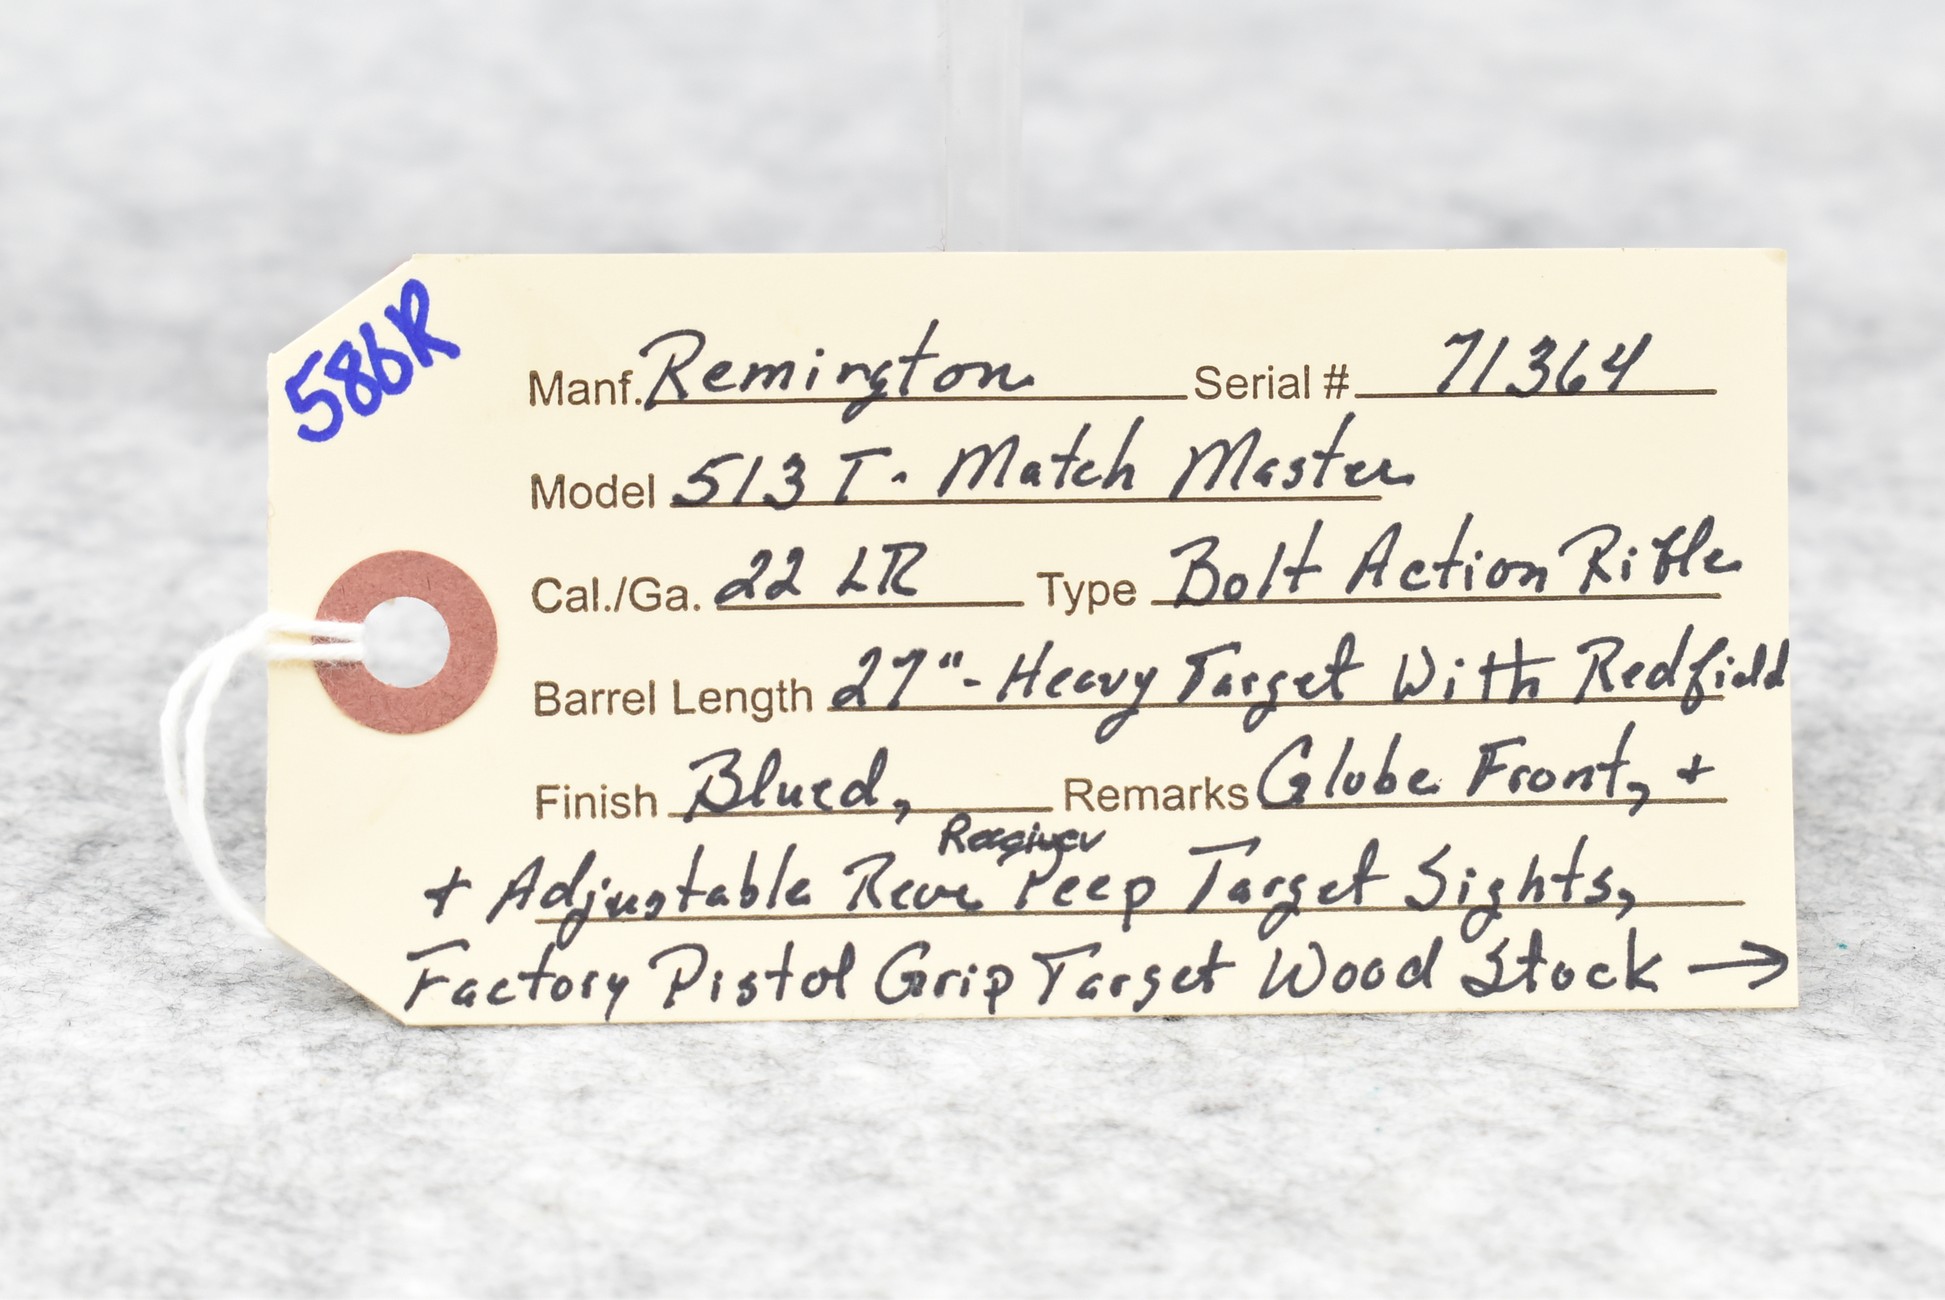 586R
Manf. Remington Serial # 71364
Model 513 T- Match Master
Cal./Ga. 22 LR Type Bolt Action Rifle
Barrel Length 27"- Heavy Target With Redfield
Finish Blued, Remarks Globe Front, +
Receiver
+ Adjustable Rear Peep Target Sights,
Factory Pistol Grip Target Wood Stock →